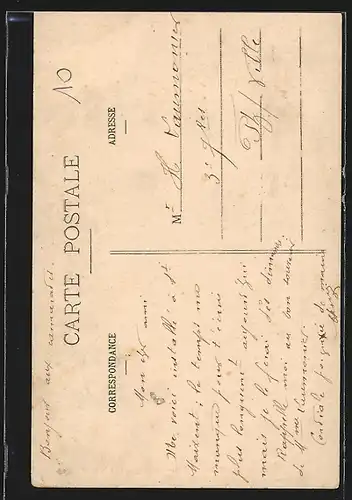 10
Bonjour aux camarades.
CARTE POSTALE
CORRESPONDANCE
ADRESSE
Mon cher ami
Me voici installé à St
Maixent; le temps me
manque pour t'écrire
plus longuement aujourd'hui
mais je le ferai dès dimanche
Rappelle moi au bon souvenir
de Mme Vaumonier
Cordiale poignée de main
Mr H. Vaumonier
3
Ville